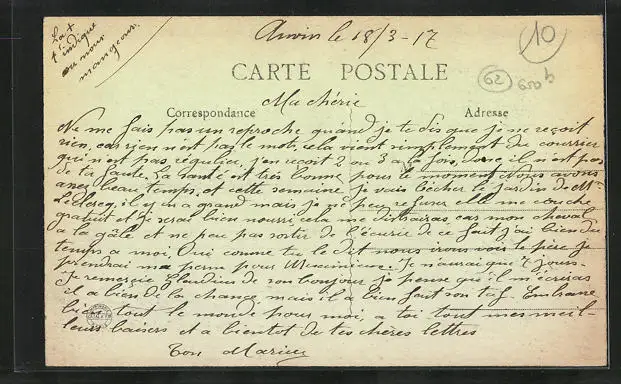 La +
t'indique
où nous
mangeons.
Anvin le 18/3-17
10
62
CARTE POSTALE
Ma chérie
Correspondance
Adresse
Ne me fais pas un reproche quand je te dis que je ne reçoit
rien, car rien n'est pas le mot, cela vient simplement du courrier
qui n'est pas régulier, j'en reçoit 2 ou 3 à la fois, donc il n'est pas
de ta faute. La santé est très bonne pour le moment. Nous avons
assez beau temps, et cette semaine je vais bêcher le jardin de Mme
Leclercq, il y en a grand mais je ne peu refuser elle me couche
gratuit et je serai bien nourri, cela me distraira car mon cheval
a la gale et ne peu pas sortir de l'écurie de ce fait j'ai bien du
temps a moi. Oui comme tu le dit nous irons voir le père je
prendrai ma perm pour . Je n'aurai que 7 jours.
Je remercie Claudius de son bonjour je pense qu'il m'écriras
il a bien de la chance mais il a bien fait son taf. Embrasse
bien tout le monde pour moi, a toi tout mes meil-
leurs baisers et a bientot de tes chères lettres
Ton Marius